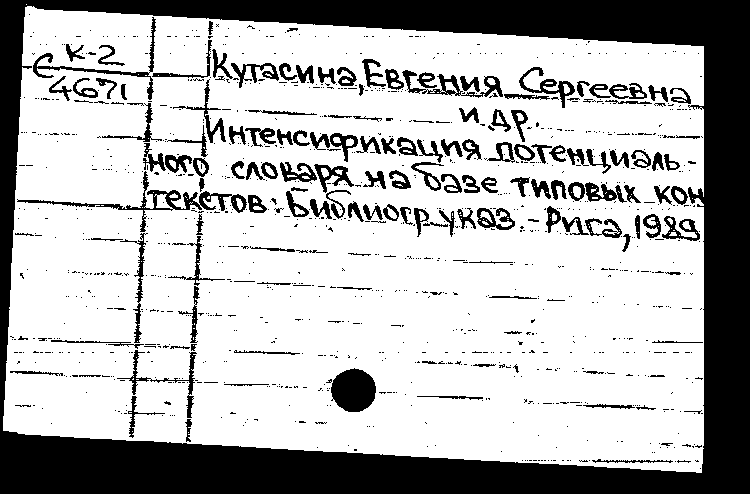 С К-2
4671
Кутасина, Евгения Сергеевна
и др.
Интенсификация потенциаль-
ного словаря на базе типовых кон
текстов: Библиогр. указ. - Рига, 1989